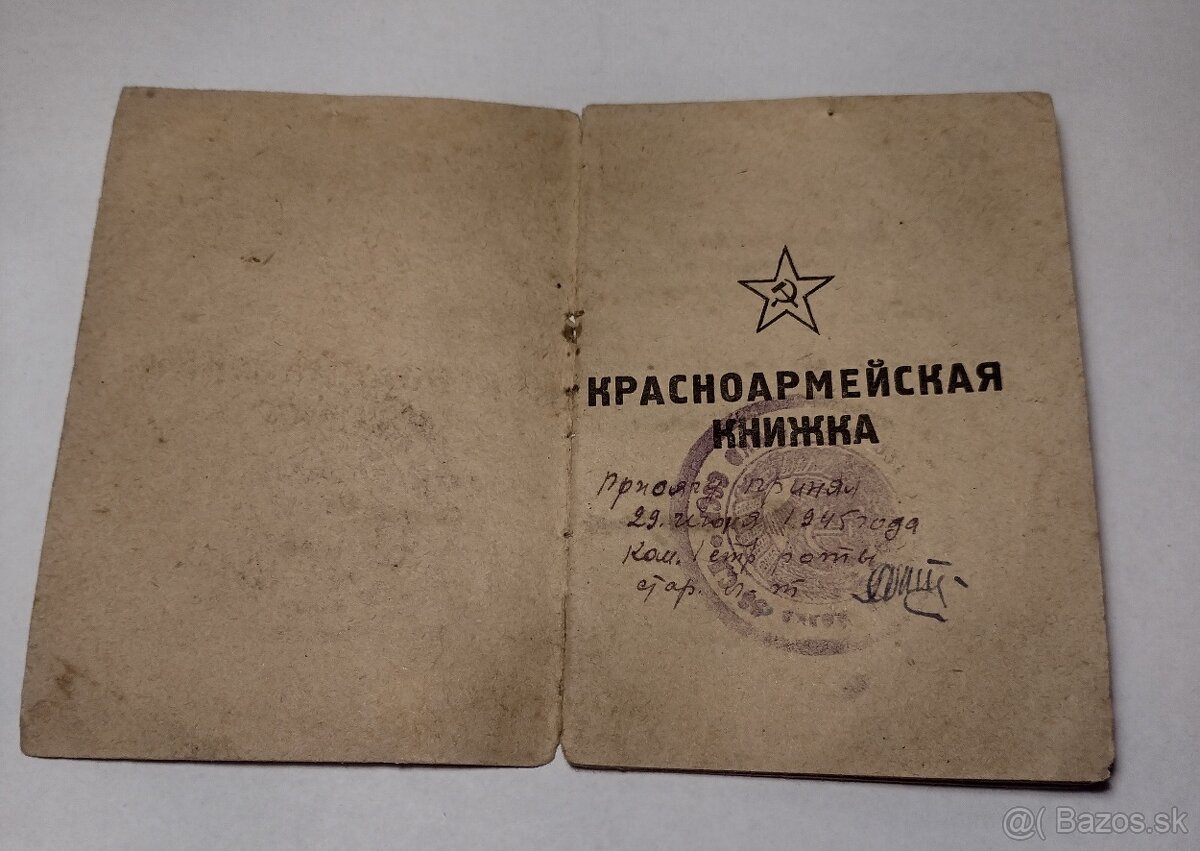 КРАСНОАРМЕЙСКАЯ
КНИЖКА
Присягу принял
29 июня 1945 года
Ком. 1 стр роты
стар. л-т
СССР
@( Bazos.sk